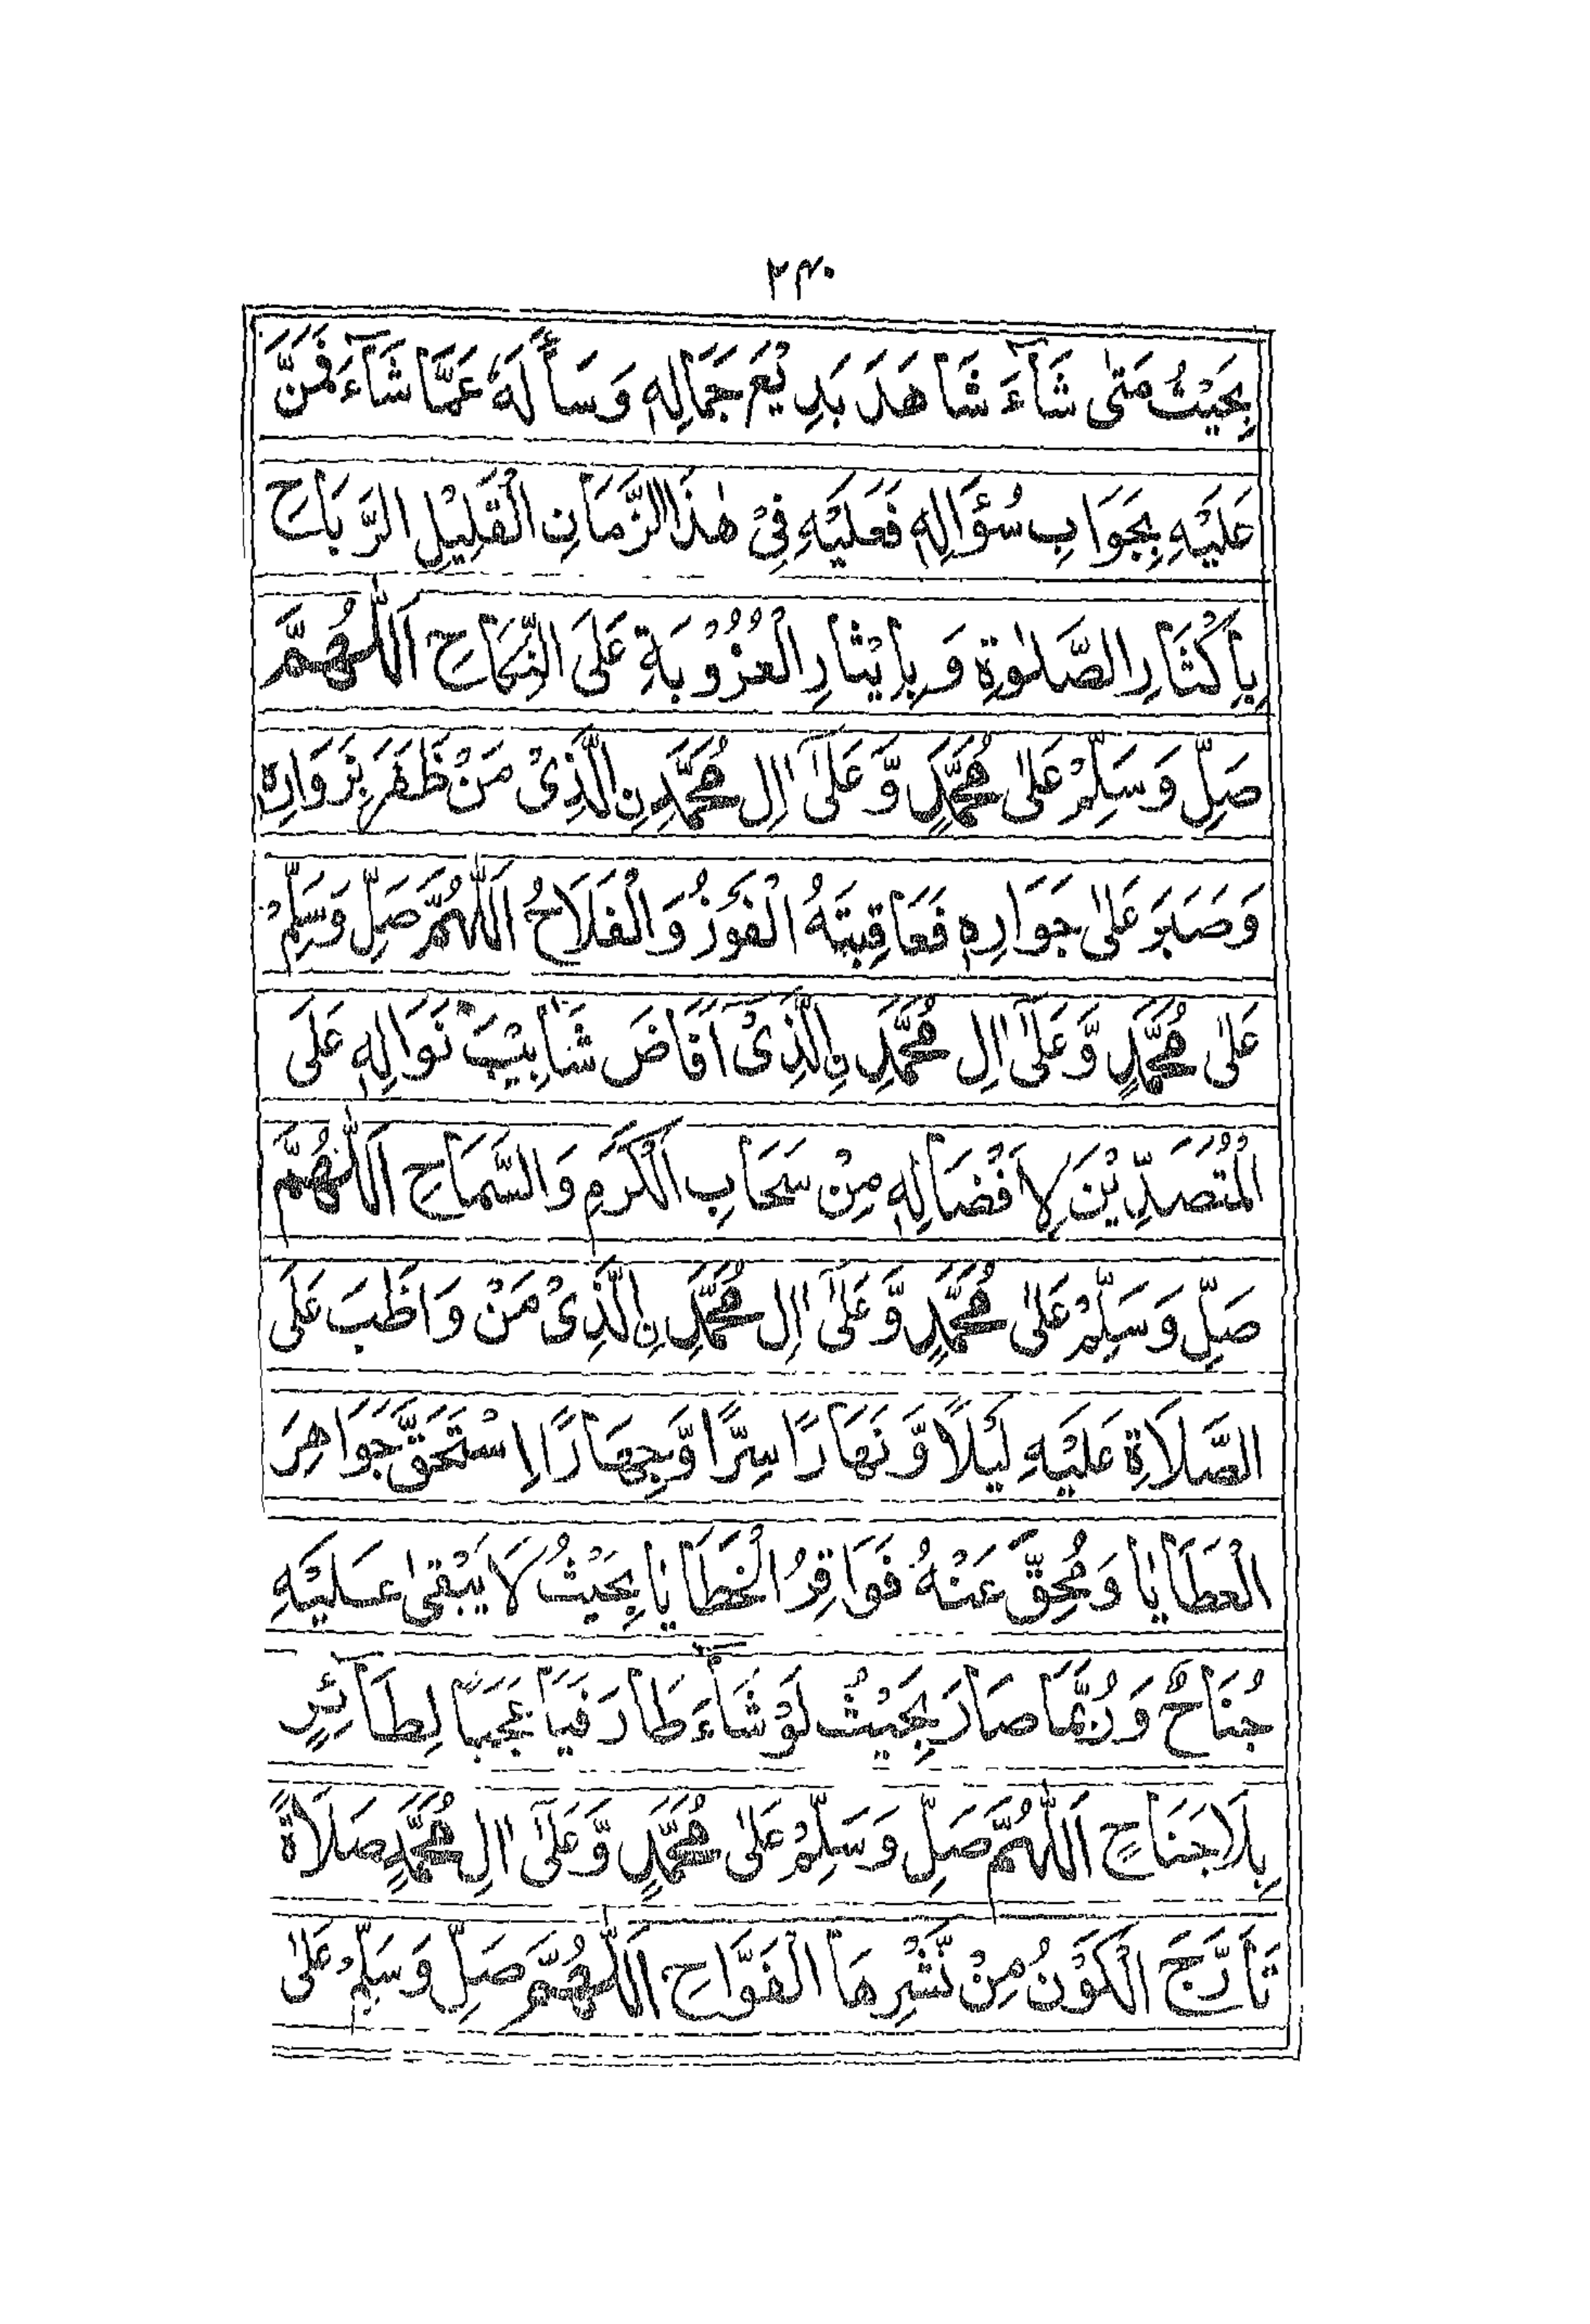 ٢٣٠
بِحَيْثُ مَتٰى شَآءَ شَاهَدَ بَدِيْعَ جَمَالِهٖ وَسَأَلَهٗ عَمَّا شَآءَ فَمَنَّ
عَلَيْهِ بِجَوَابِ سُؤَالِهٖ فَعَلَيْهِ فِيْ هٰذَا الزَّمَانِ الْقَلِيْلِ الرَّبَاحِ
بِاِكْثَارِ الصَّلٰوةِ وَبِاِيْثَارِ الْعُزُوْبَةِ عَلَى النِّكَاحِ اَللّٰهُمَّ
صَلِّ وَسَلِّمْ عَلٰى مُحَمَّدٍ وَّعَلٰٓى اٰلِ مُحَمَّدِ نِ الَّذِىْ مَنْ ظَفَرَ بِزَوَارِهٖ
وَصَبَرَ عَلٰى جَوَارِهٖ فَعَاقِبَتَهُ الْفَوْزُ وَالْفَلَاحُ اَللّٰهُمَّ صَلِّ وَسَلِّمْ
عَلٰى مُحَمَّدٍ وَّعَلٰٓى اٰلِ مُحَمَّدِ نِ الَّذِىْ اَفَاضَ شَاٰبِيْبَ نَوَالِهٖ عَلَى
الْمُتَصَدِّيْنَ لِاَفْضَالِهٖ مِنْ سَحَابِ الْكَرَمِ وَالسَّمَاحِ اَللّٰهُمَّ
صَلِّ وَسَلِّمْ عَلٰى مُحَمَّدٍ وَّعَلٰٓى اٰلِ مُحَمَّدِ نِ الَّذِىْ مَنْ وَاظَبَ عَلَى
الصَّلَاةِ عَلَيْهِ لَيْلًا وَّنَهَارًا سِرًّا وَّجِهَارًا اِسْتَحَقَّ جَوَاهِرَ
الْعَطَايَا وَمُحِقَّ عَنْهُ فَوَاقِرُ الْخَطَايَا بِحَيْثُ لَا يَبْقٰى عَلَيْهِ
جُنَاحٌ وَرُبَّمَا صَارَ بِحَيْثُ لَوْ شَآءَ طَارَ فَيَا عَجَبًا لِطَآئِرٍ
بِلَا جَنَاحٍ اَللّٰهُمَّ صَلِّ وَسَلِّمْ عَلٰى مُحَمَّدٍ وَّعَلٰٓى اٰلِ مُحَمَّدٍ صَلَاةً
تَاَرَّجَ الْكَوْنُ مِنْ نَّشْرِهَا الْفَوَّاحِ اَللّٰهُمَّ صَلِّ وَسَلِّمْ عَلٰى